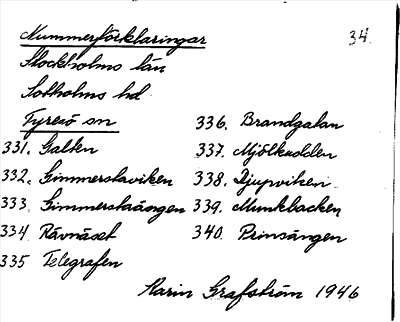 Nummerförklaringar
34.
Stockholms län
Sotholms hd
Tyresö sn
331. Galten
332. Gimmerstaviken
333. Gimmerstaängen
334 Rävnäset
335 Telegrafen
336. Brandgatan
337. Mjölkudden
338. Djupviken
339. Munkbacken
340. Prinsängen
Karin Grafström 1946